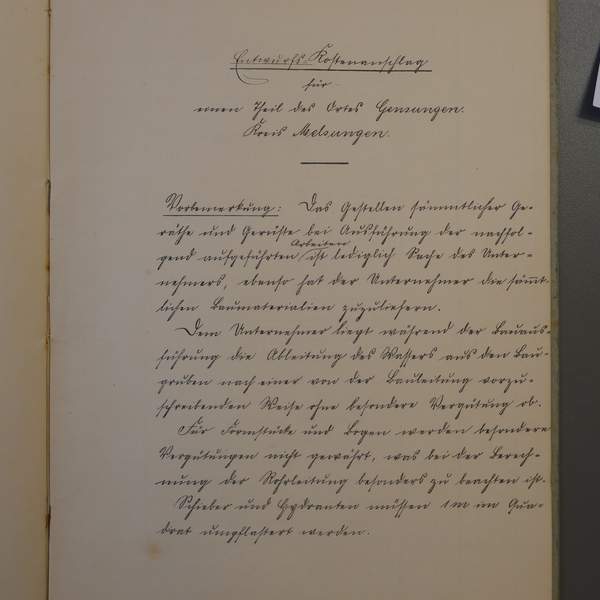 Entwurfs-Kostenanschlag
für
einen Theil des Ortes Gensungen.
Kreis Melsungen.
Vorbemerkung: Das Gestellen sämmtlicher Ge-
räthe und Gerüste bei Ausführung der nachfol-
gend aufgeführten Arbeiten ist lediglich Sache des Unter-
nehmers, ebenso hat der Unternehmer die sämmt-
lichen Baumaterialien zuzuliefern.
Dem Unternehmer liegt während der Bauaus-
führung die Ableitung des Wassers aus den Bau-
gruben nach einer von der Bauleitung vorzu-
schreibenden Weise ohne besondere Vergütung ob.
Für Formstücke und Bogen werden besondere
Vergütungen nicht gewährt, was bei der Berech-
nung der Rohrleitung besonders zu beachten ist.
Schieber und Hydranten müssen 1 m im Qua-
drat umpflastert werden.